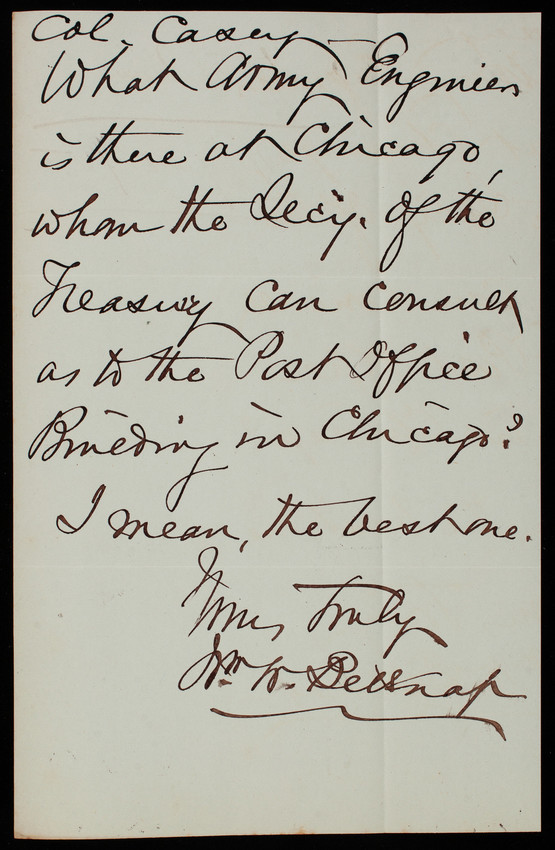 Col. Casey —
What Army Engineer
is there at Chicago,
whom the Secy. of the
Treasury can consult
as to the Post Office
Building in Chicago?
I mean, the best one.
Yours Truly
Wm. W. Belknap